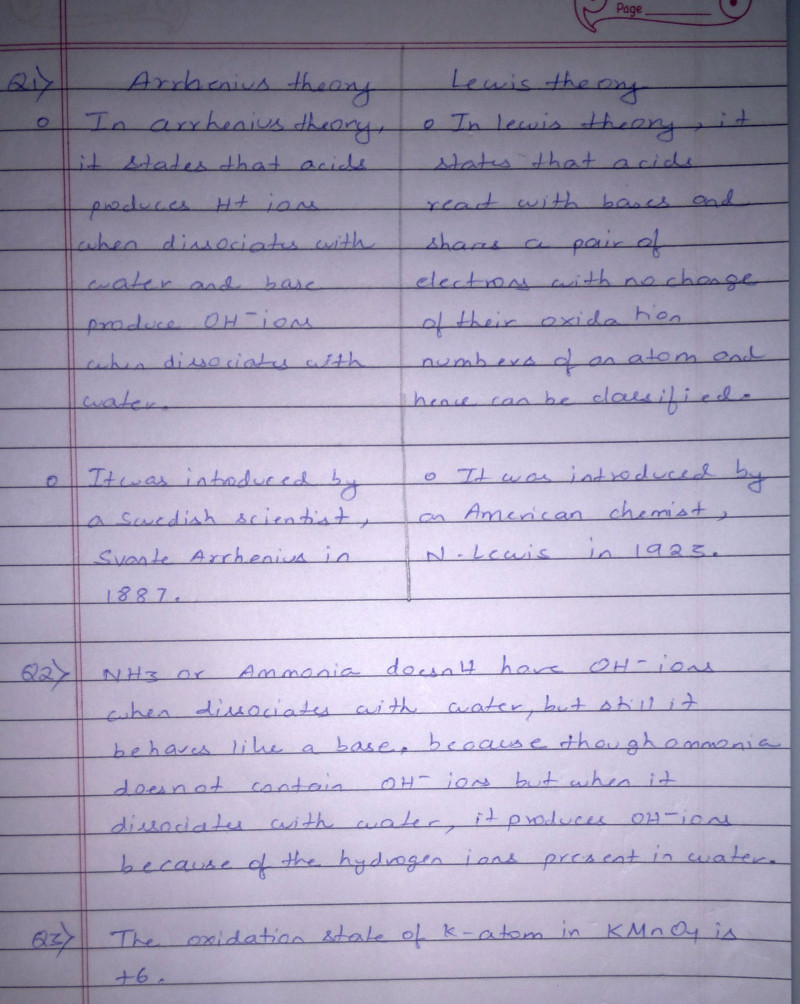 Page
Q1> Arrhenius theory
o In arrhenius theory,
it states that acids
produces H+ ions
when dissociates with
water and base
produce OH- ions
when dissociates with
water.
o It was introduced by
a Swedish scientist,
Svante Arrhenius in
1887.
Lewis theory
o In lewis theory, it
states that acids
react with bases and
shares a pair of
electrons with no change
of their oxidation
numbers of an atom and
hence can be classified.
o It was introduced by
an American chemist,
N. Lewis in 1923.
Q2> NH3 or Ammonia doesn't have OH- ions
when dissociates with water, but still it
behaves like a base, because though ammonia
doesnot contain OH- ions but when it
dissociates with water, it produces OH- ions
because of the hydrogen ions present in water.
Q3> The oxidation state of K-atom in KMnO4 is
+6.